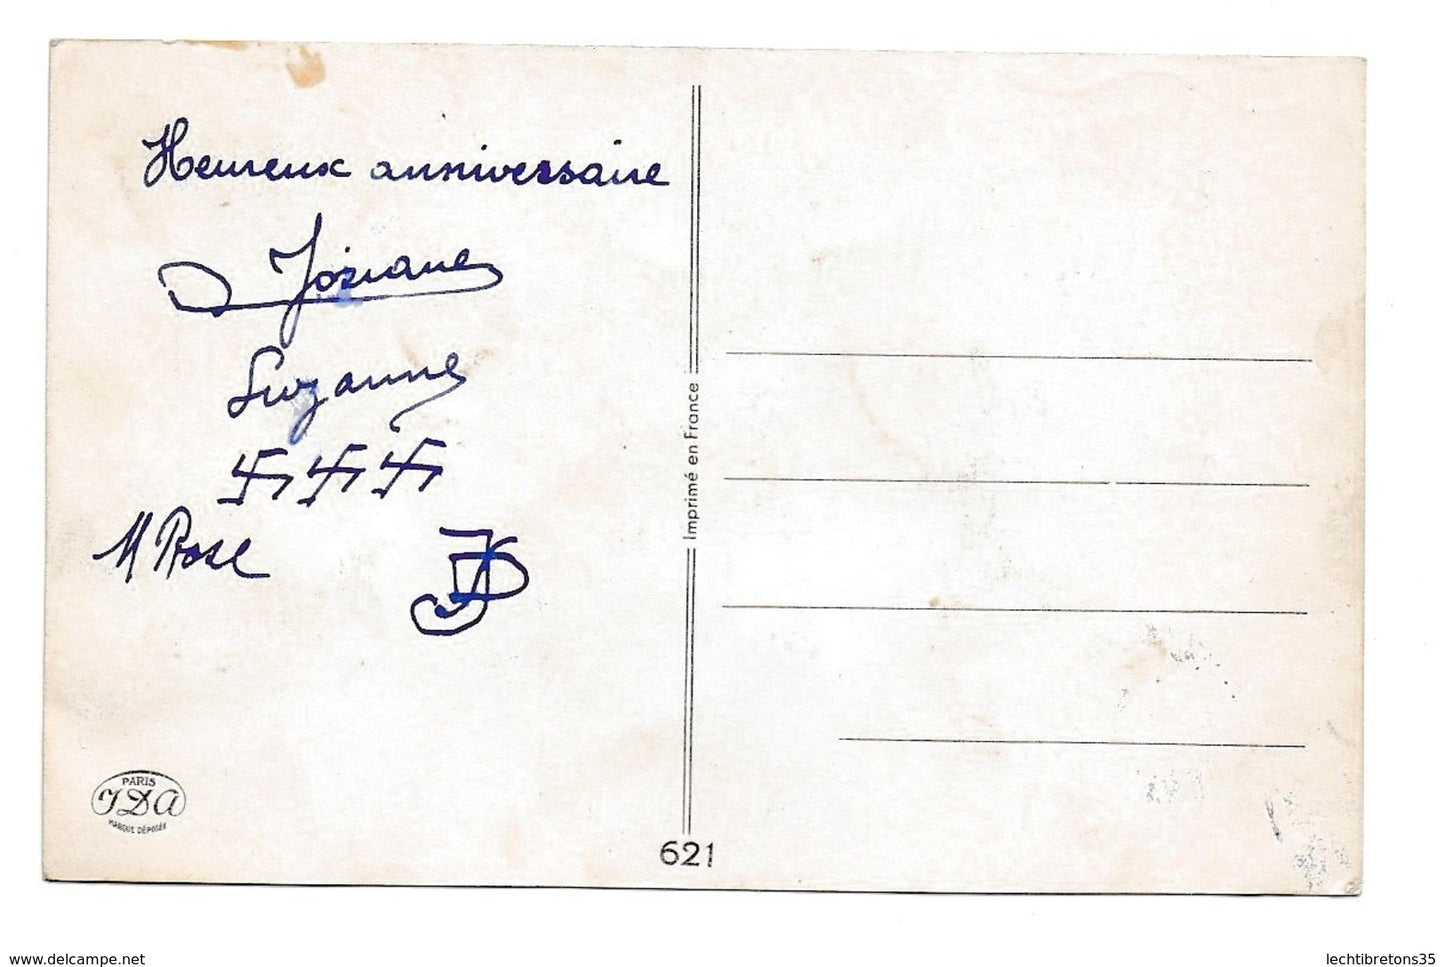 Heureux anniversaire
Josiane
Suzanne
M Rose
Imprimé en France
PARIS
IDA
MARQUE DÉPOSÉE
621
www.delcampe.net
lechtibretons35